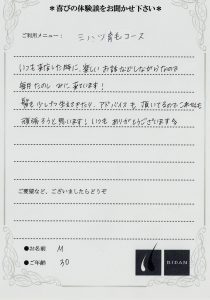 ＊喜びの体験談をお聞かせ下さい＊
ご利用メニュー： ミハツ育毛コース
いつも来店した際に、楽しいお話などしながらなので
毎日たのしみに来ています！
髪も少しずつ生えてきたり、アドバイスも頂いてるのでこれからも
頑張ろうと思います！いつもありがとうございます
ご要望など、ございましたらどうぞ
●お名前 M
●ご年齢 30
BIDAN